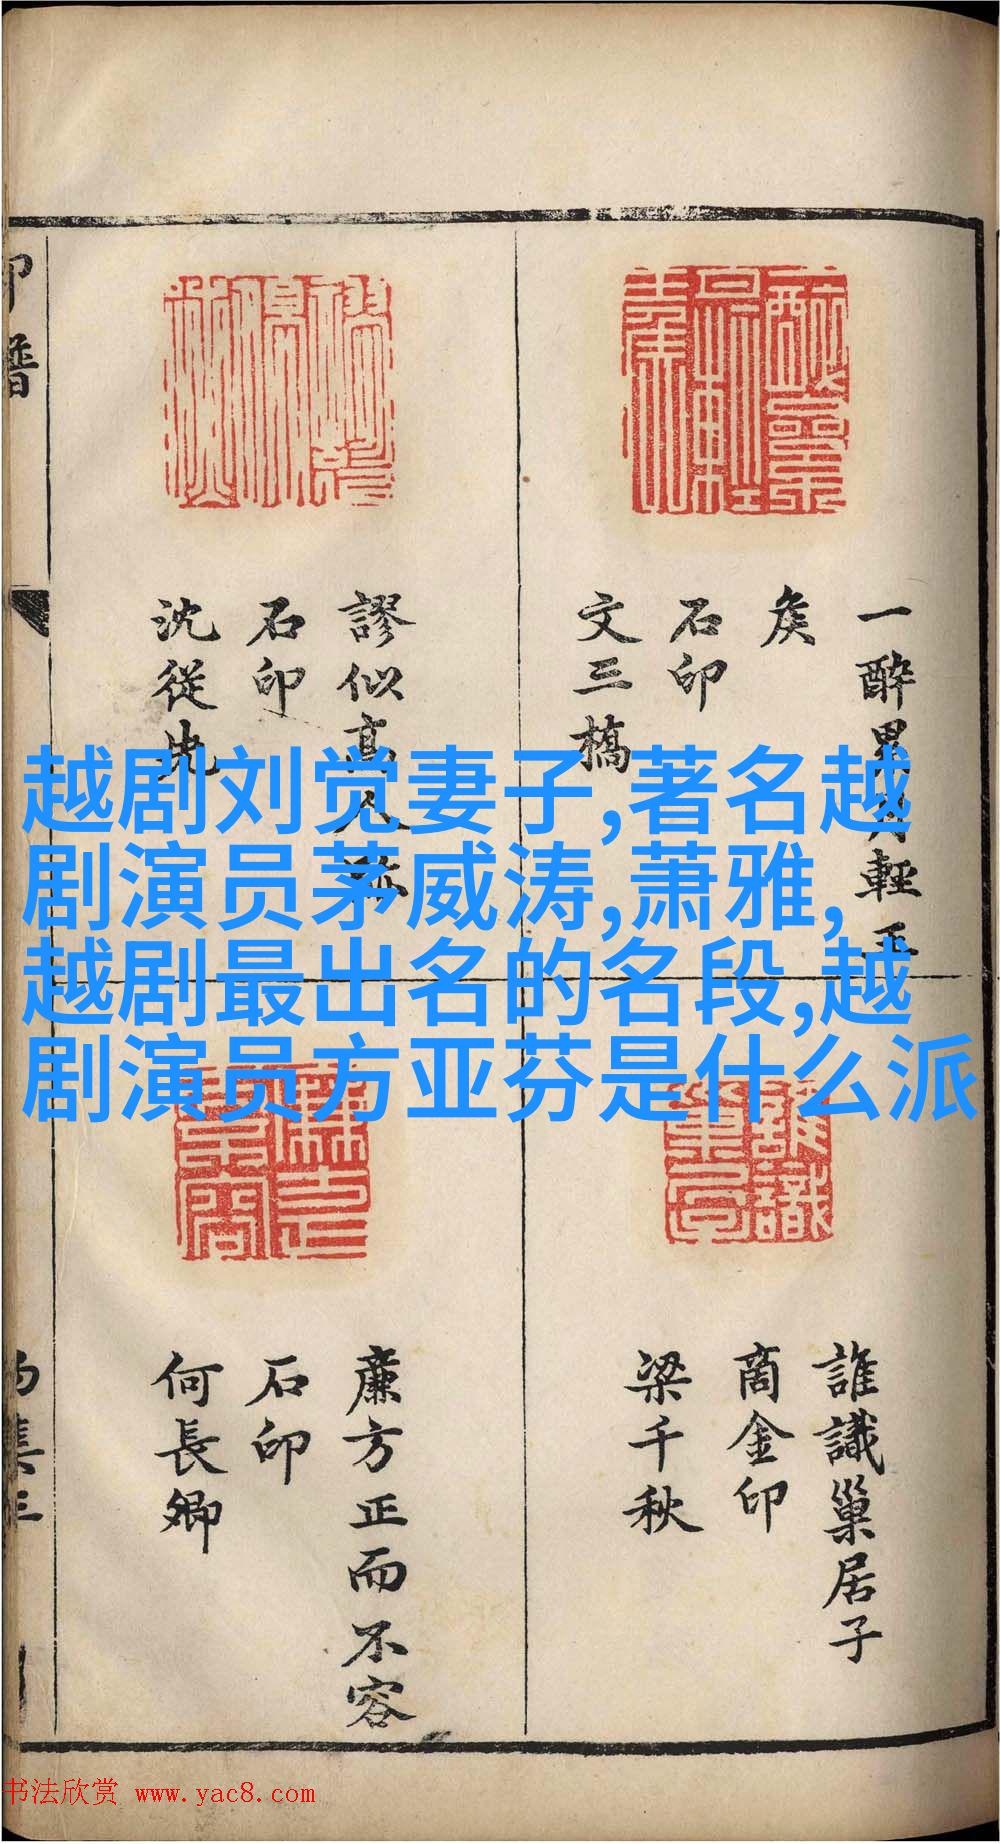 越剧刘觉妻子,著名越
剧演员茅威涛,萧雅,
越剧最出名的名段,越
剧演员方亚芬是什么派
印譜
一醉累月輕王
矦
石印
文三橋
謬似高人
石印
沈從先
誰識巢居子
商金印
梁千秋
廉方正而不容
石印
何長卿
书法欣赏 www.yac8.com